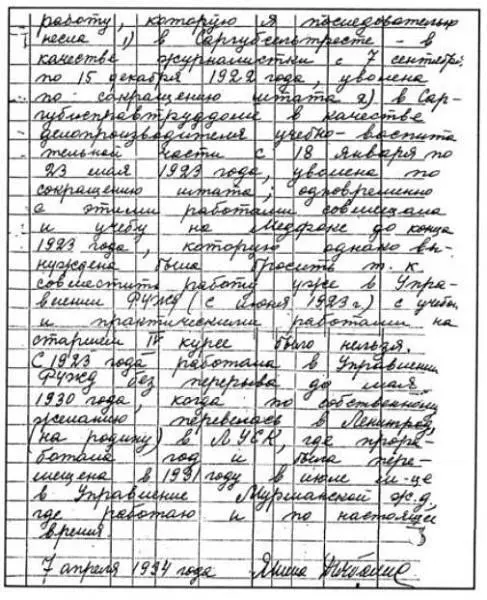 работу, которую я последовательно
несла 1) в Саргубсельтресте - в
качестве журналистки с 7 сентября
по 15 декабря 1922 года, уволена
по сокращению штата 2) в Сар-
губисправтруддоме в качестве
делопроизводителя учебно-воспита
тельной части с 18 января по
23 мая 1923 года, уволена по
сокращению штата; одновременно
с этими работами совмещала
и учебу на Медфаке до конца
1923 года, которую однако вы-
нуждена была бросить т.к.
совместить работу уже в Упра-
влении РУЖД (с июня 1923 г.) с учебн.
и практическими работами на
старшем IV курсе было нельзя.
С 1923 года работала в Управлении
РУЖД без перерыва до мая
1930 года, когда по собственному
желанию перевелась в Ленинград
(на родину) в ЛУСК, где прора-
ботала год и была пере-
мещена в 1931 году в июле м-це
в Управление Мурманской ж.д,
где работаю и по настоящее
время.
7 апреля 1934 года Янина